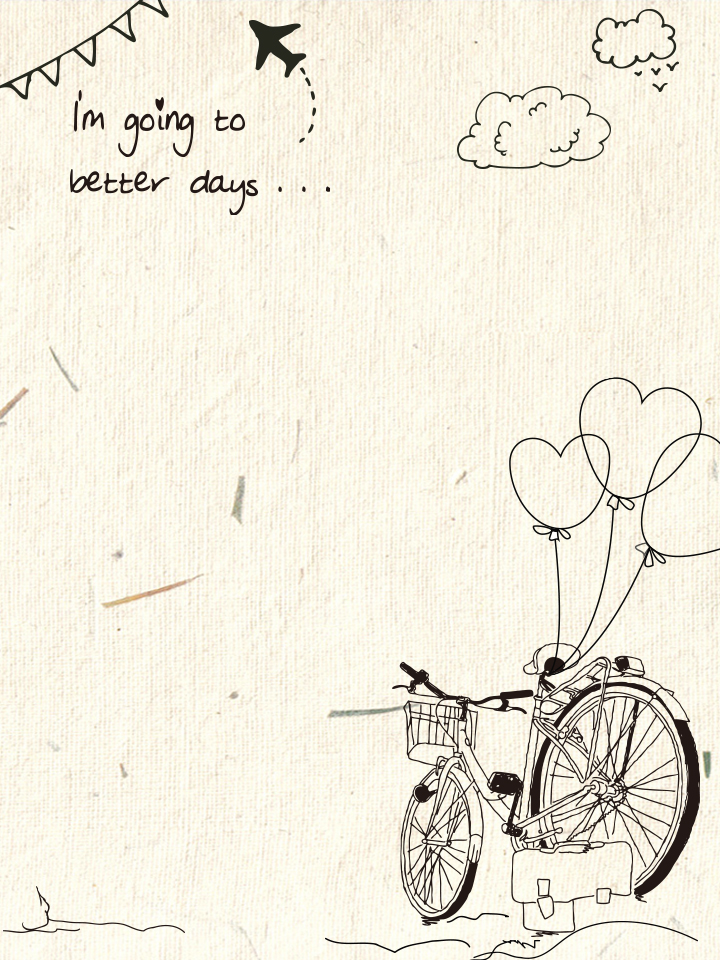 I'm going to
better days . . .